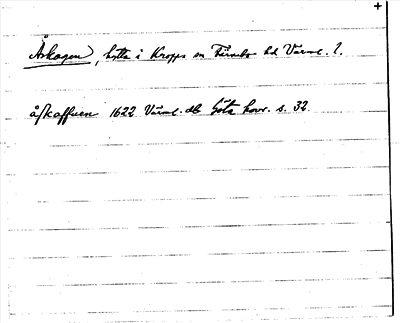 +
Åskagen, hytta i Kropps sn Färnebo hd Värml. l.
åskaffuen 1622 Värml. db Göta hovr. s. 32.